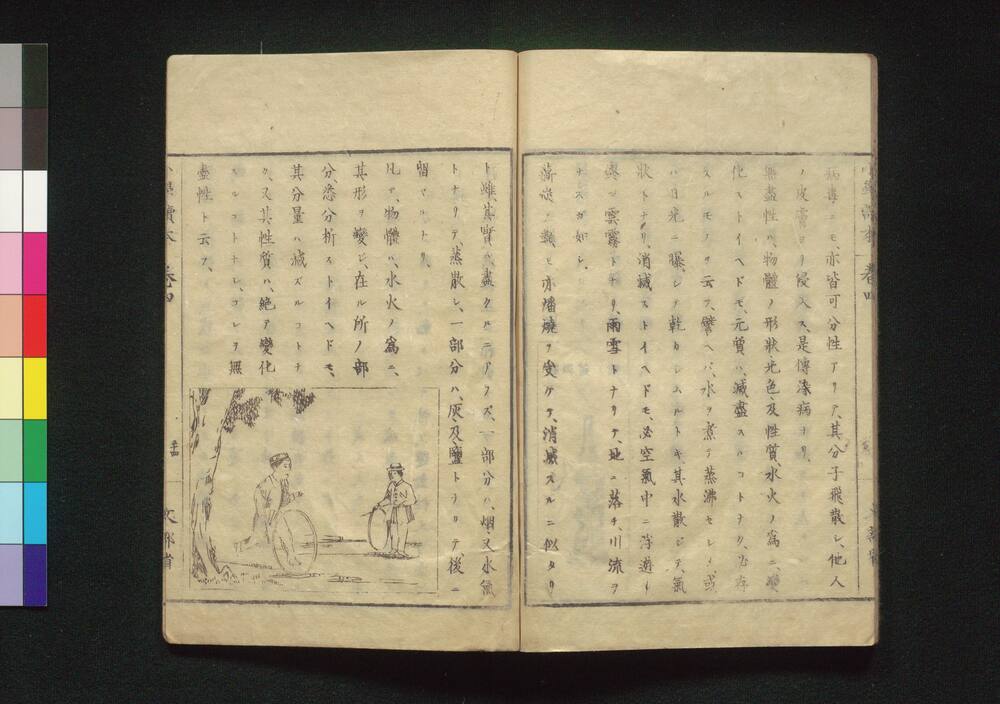 病毒ニモ、亦皆可分性アリテ、其分子飛散シ、他人
ノ皮膚ヨリ侵入ス、是傳染病ヨリ、
無盡性ハ、物體ノ形狀光色、及性質、水火ノ爲ニ、變
化ストイヘドモ、元質ハ、減盡スルコトナク、必存
スルモノヲ云フ、譬ヘバ、水ヲ煮テ蒸沸セシメ、或
ハ日光ニ曝シテ乾カシムルトキ、其水散ジテ氣
狀トナリ、消滅ストイヘドモ、必空氣中ニ浮遊シ
雲霧トナリ、雨雪トナリテ、地ニ落チ、川流ヲ
ナスガ如シ、
薪炭ノ類モ亦燔燒ヲ受ケテ、消滅スルニ似タリ
ト雖、其實ハ、盡クルニアラズ、一部分ハ、烟、又水氣
トナリテ、蒸散シ、一部分ハ、灰、及鹽トナリテ、後ニ
留マルナリ、
凡テ、物體ハ、水火ノ爲ニ、
其形ヲ變シ、在ル所ノ部
分悉分析ストイヘドモ、
其分量ハ減ズルコトナ
ク、又其性質ハ、絶テ變化
スルコトナシ、コレヲ無
盡性ト云フ、
小學讀本 卷四
文部省